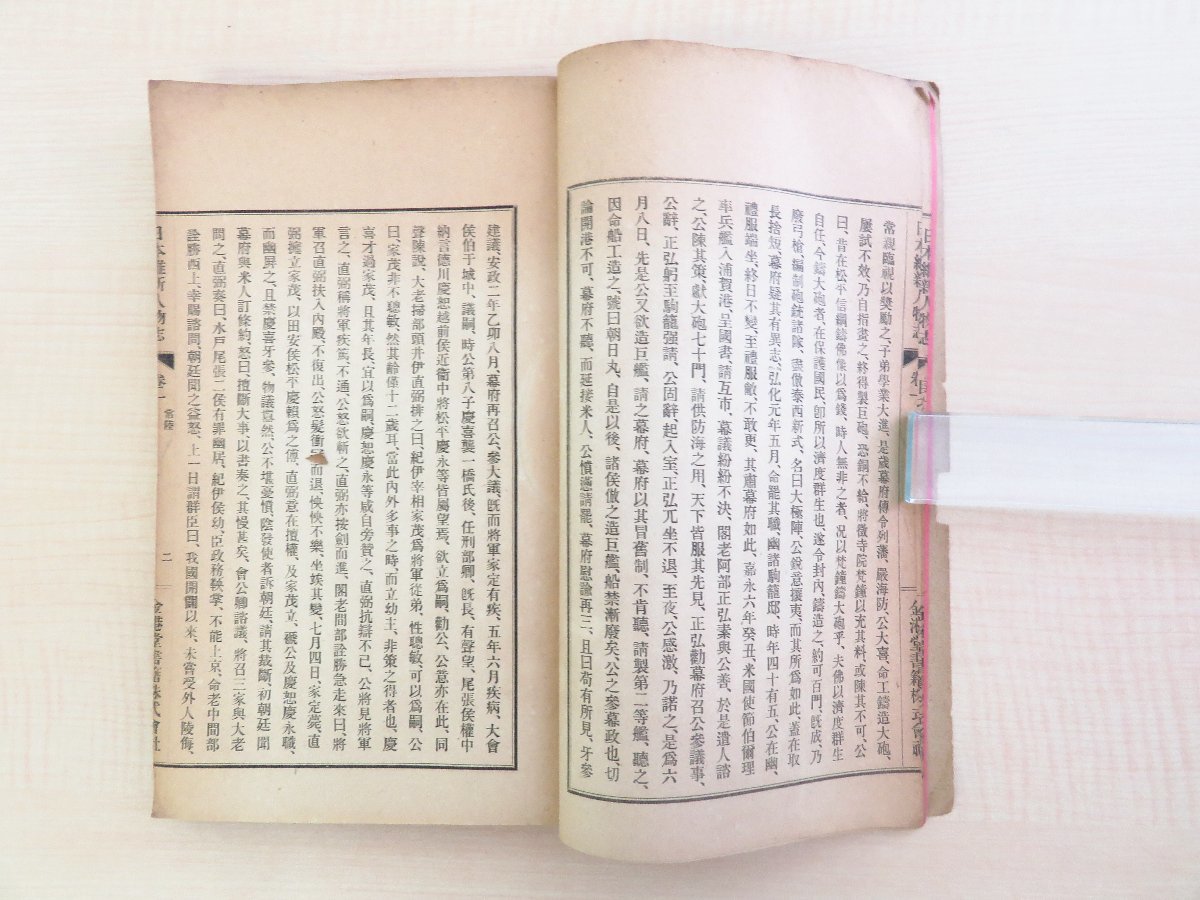 日本維新人物志
卷一
常親臨視以奬勵之、子弟學業大進、是歲幕府傳令列藩、嚴海防、公大喜、命工鑄造大砲、
屢試不效、乃自指畫之、終得製巨砲、恐銅不給、將徵寺院梵鐘以充其料、或陳其不可、公
曰、昔在松平信綱鑄佛像以爲錢、時人無非之者、況以梵鐘鑄大砲乎、夫佛以濟度群生
自任、今鑄大砲者、在保護國民、卽所以濟度群生也、遂令封內、鑄造之、約可百門、旣成、乃
廢弓槍、編制砲銃諸隊、盡倣泰西新式、名曰大極陣、公銳意攘夷、而其所爲如此、蓋在取
長捨短、幕府疑其有異志、弘化元年五月、命罷其職、幽諸駒籠邸、時年四十有五、公在幽、
禮服端坐、終日不變、至禮服敝、不敢更、其肅幕府如此、嘉永六年癸丑、米國使節伯爾理
率兵艦入浦賀港、呈國書、請互市、幕議紛紛不決、閣老阿部正弘素與公善、於是遣人諮
之、公陳其策、獻大砲七十門、請供防海之用、天下皆服其先見、正弘勸幕府召公參議事、
公辭、正弘躬至駒籠强請、公固辭、起入至、正弘兀坐不退、至夜、公感激、乃諾之、是爲六
月八日、先是公又欲造巨艦、請之幕府、幕府以其冒舊制、不肯聽、請製第二等艦、聽之、
因命船工造之、號曰朝日丸、自是以後、諸侯倣之造巨艦、船禁漸廢矣、公之參幕政也、切
論開港不可、幕府不聽、而延接米人、公憤懣請罷、幕府慰諭再三、且曰苟有所見、牙參
建議、安政二年乙卯八月、幕府再召公、參大議、旣而將軍家定有疾、五年六月疾病、大會
侯伯于城中、議嗣、時公第八子慶喜襲一橋氏後、任刑部卿、旣長、有聲望、尾張侯權中
納言德川慶恕越前侯近衞中將松平慶永等皆屬望焉、欲立爲嗣、勸公、公意亦在此、同
聲陳說、大老掃部頭井伊直弼排之曰、紀伊宰相家茂爲將軍從弟、性聰敏、可以爲嗣、公
曰、家茂非不聰敏、然其齡僅十二歲耳、當此內外多事之時、而立幼主、非策之得者也、慶
喜才過家茂、且其年長、宜以爲嗣、慶恕慶永等咸自旁贊之、直弼抗辯不已、公將見將軍
言之、直弼稱將軍疾篤、不通、公怒欲斬之、直弼亦按劍而進、閣老間部詮勝急走來曰、將
軍召直弼扶入內殿、不復出、公怒髮衝而退、怏怏不樂、坐竢其變、七月四日、家定薨、直
弼擁立家茂、以田安侯松平慶賴爲之傅、直弼意在擅權、及家茂立、礙公及慶恕慶永職、
而幽屛之、且禁慶喜牙參、物議囂然、公不堪憂憤、陰發使者訴朝廷、請其裁斷、初朝廷聞
幕府與米人訂條約、怒曰、擅斷大事、以書奏之、其慢甚矣、會公卿諮議、將召三家與大老
問之、直弼奏曰、水戶尾張二侯有罪幽居、紀伊侯幼、臣政務鞅掌、不能上京、命老中間部
詮勝西上、幸賜諮問、朝廷聞之益怒、上一日謂群臣曰、我國開闢以來、未嘗受外人陵侮、
日本維新人物志
卷一
常陸
二
金港堂書籍株式會社